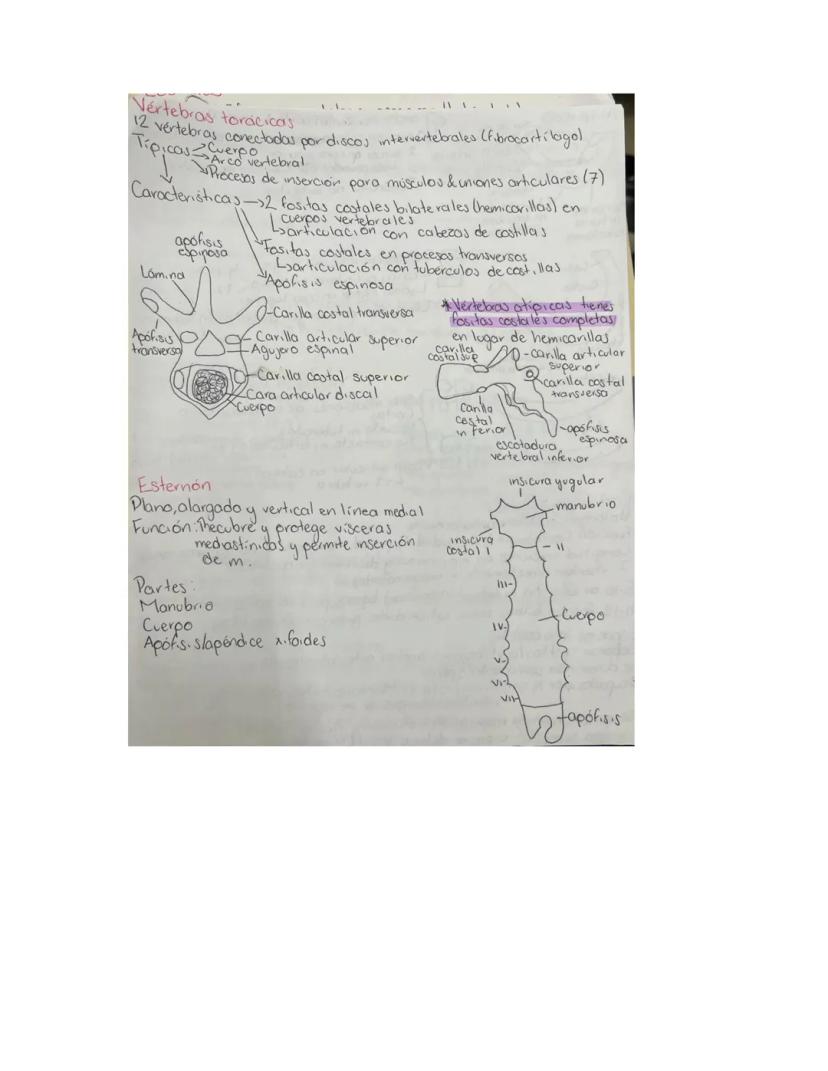 Vértebras torácicas
12 vértebras conectadas por discos intervertebrales (fibrocartílago)
Típicas → Cuerpo
→ Arco vertebral
→ Procesos de inserción para músculos & uniones articulares (7)
Características → 2 fositas costales bilaterales (hemicarillas) en
cuerpos vertebrales
↳ articulación con cabezas de costillas
Fositas costales en procesos transversos
↳ articulación con tubérculos de costillas
Apófisis espinosa
apófisis
espinosa
Lámina
Carilla costal transversa
Apófisis
transversa
Carilla articular superior
Agujero espinal
Carilla costal superior
Cara articular discal
Cuerpo
* Vértebras atípicas tienes
fositas costales completas
en lugar de hemicarillas
carilla
costal sup
carilla articular
superior
carilla costal
transversa
carilla
costal
inferior
apófisis
espinosa
escotadura
vertebral inferior
Esternón
Plano, alargado y vertical en línea medial
Función: Recubre y protege vísceras
mediastínicas y permite inserción
de m.
Partes:
Manubrio
Cuerpo
Apófisis/apéndice xifoides
insicura yugular
manubrio
insicura
costal I
II
III
IV
V
VI
VII
Cuerpo
apófisis